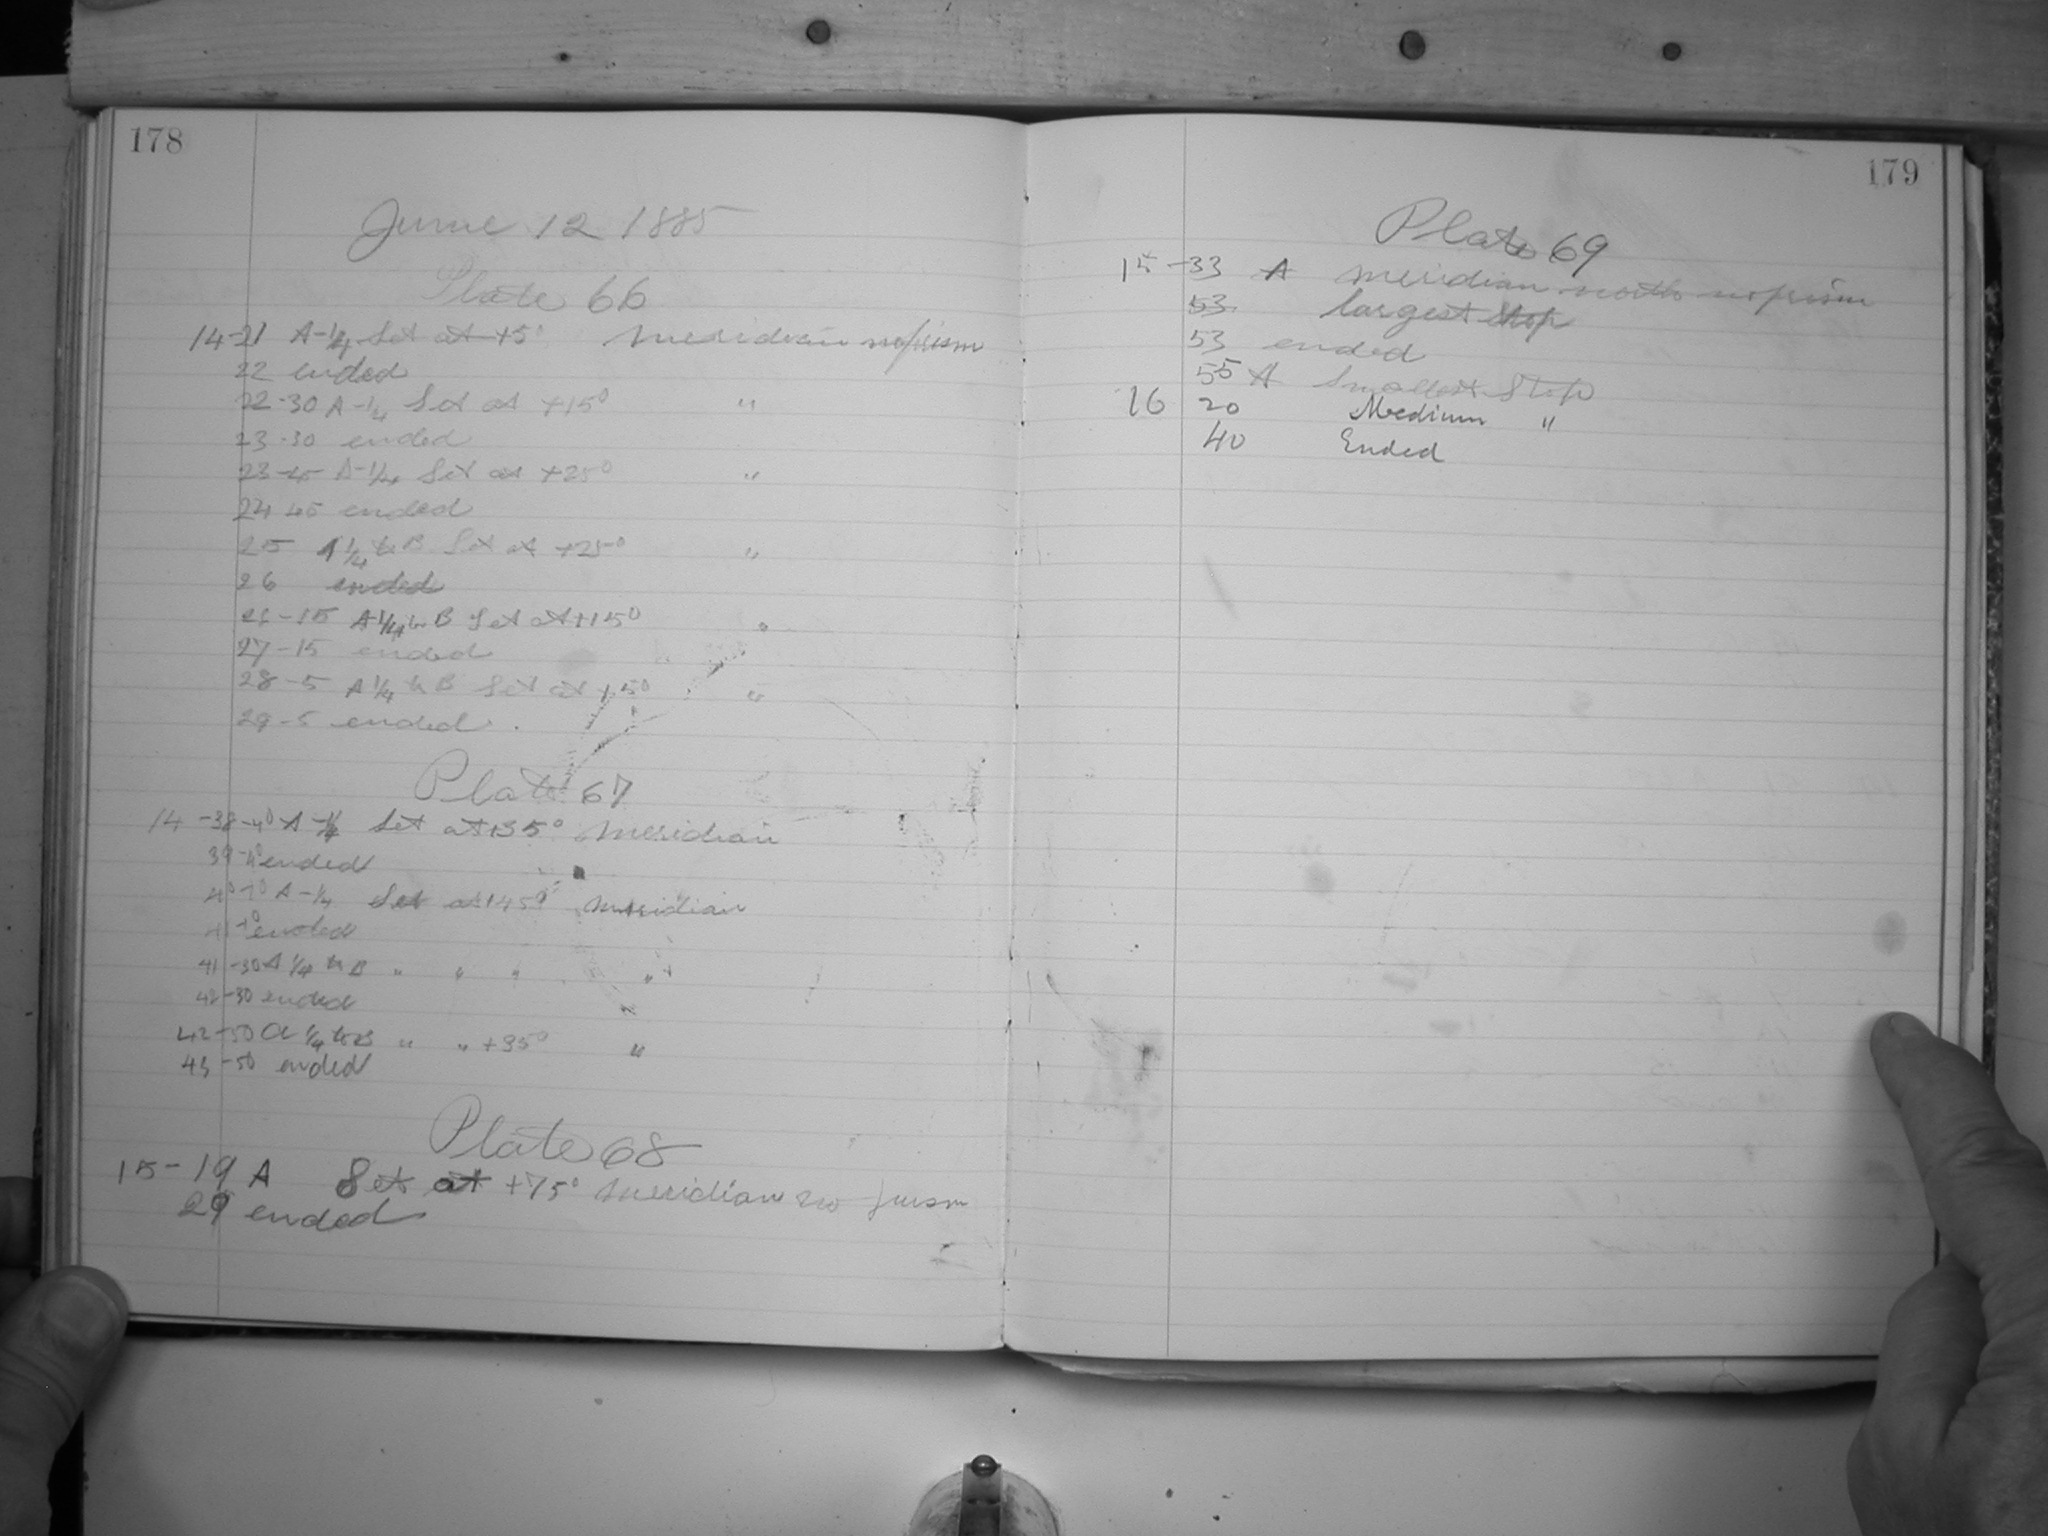 178
June 12 1885
Plate 66
14-21 A-1/4 Set at +5° Meridian no prism
22 ended
22-30 A-1/4 Set at +15° "
23-30 ended
23-45 A-1/4 Set at +25° "
24 45 ended
25 A 1/4 to B Set at +25° "
26 ended
26-15 A 1/4 to B Set at +15° "
27-15 ended
28-5 A 1/4 to B Set at +5° "
29-5 ended.
Plate 67
14-38-40 A-1/4 Set at +35° Meridian
39-40 ended
40-10 A-1/4 Set at +45° Meridian
41-10 ended
41-30 A 1/4 to B " " " "
42-30 ended
42-50 A 1/4 to B " " +35° "
43-50 ended
Plate 68
15-19 A Set at +75° Meridian no prism
29 ended
179
Plate 69
15-33 A Meridian north no prism
53 largest stop
53 ended
55 A Smallest Stop
16 20 Medium "
40 Ended